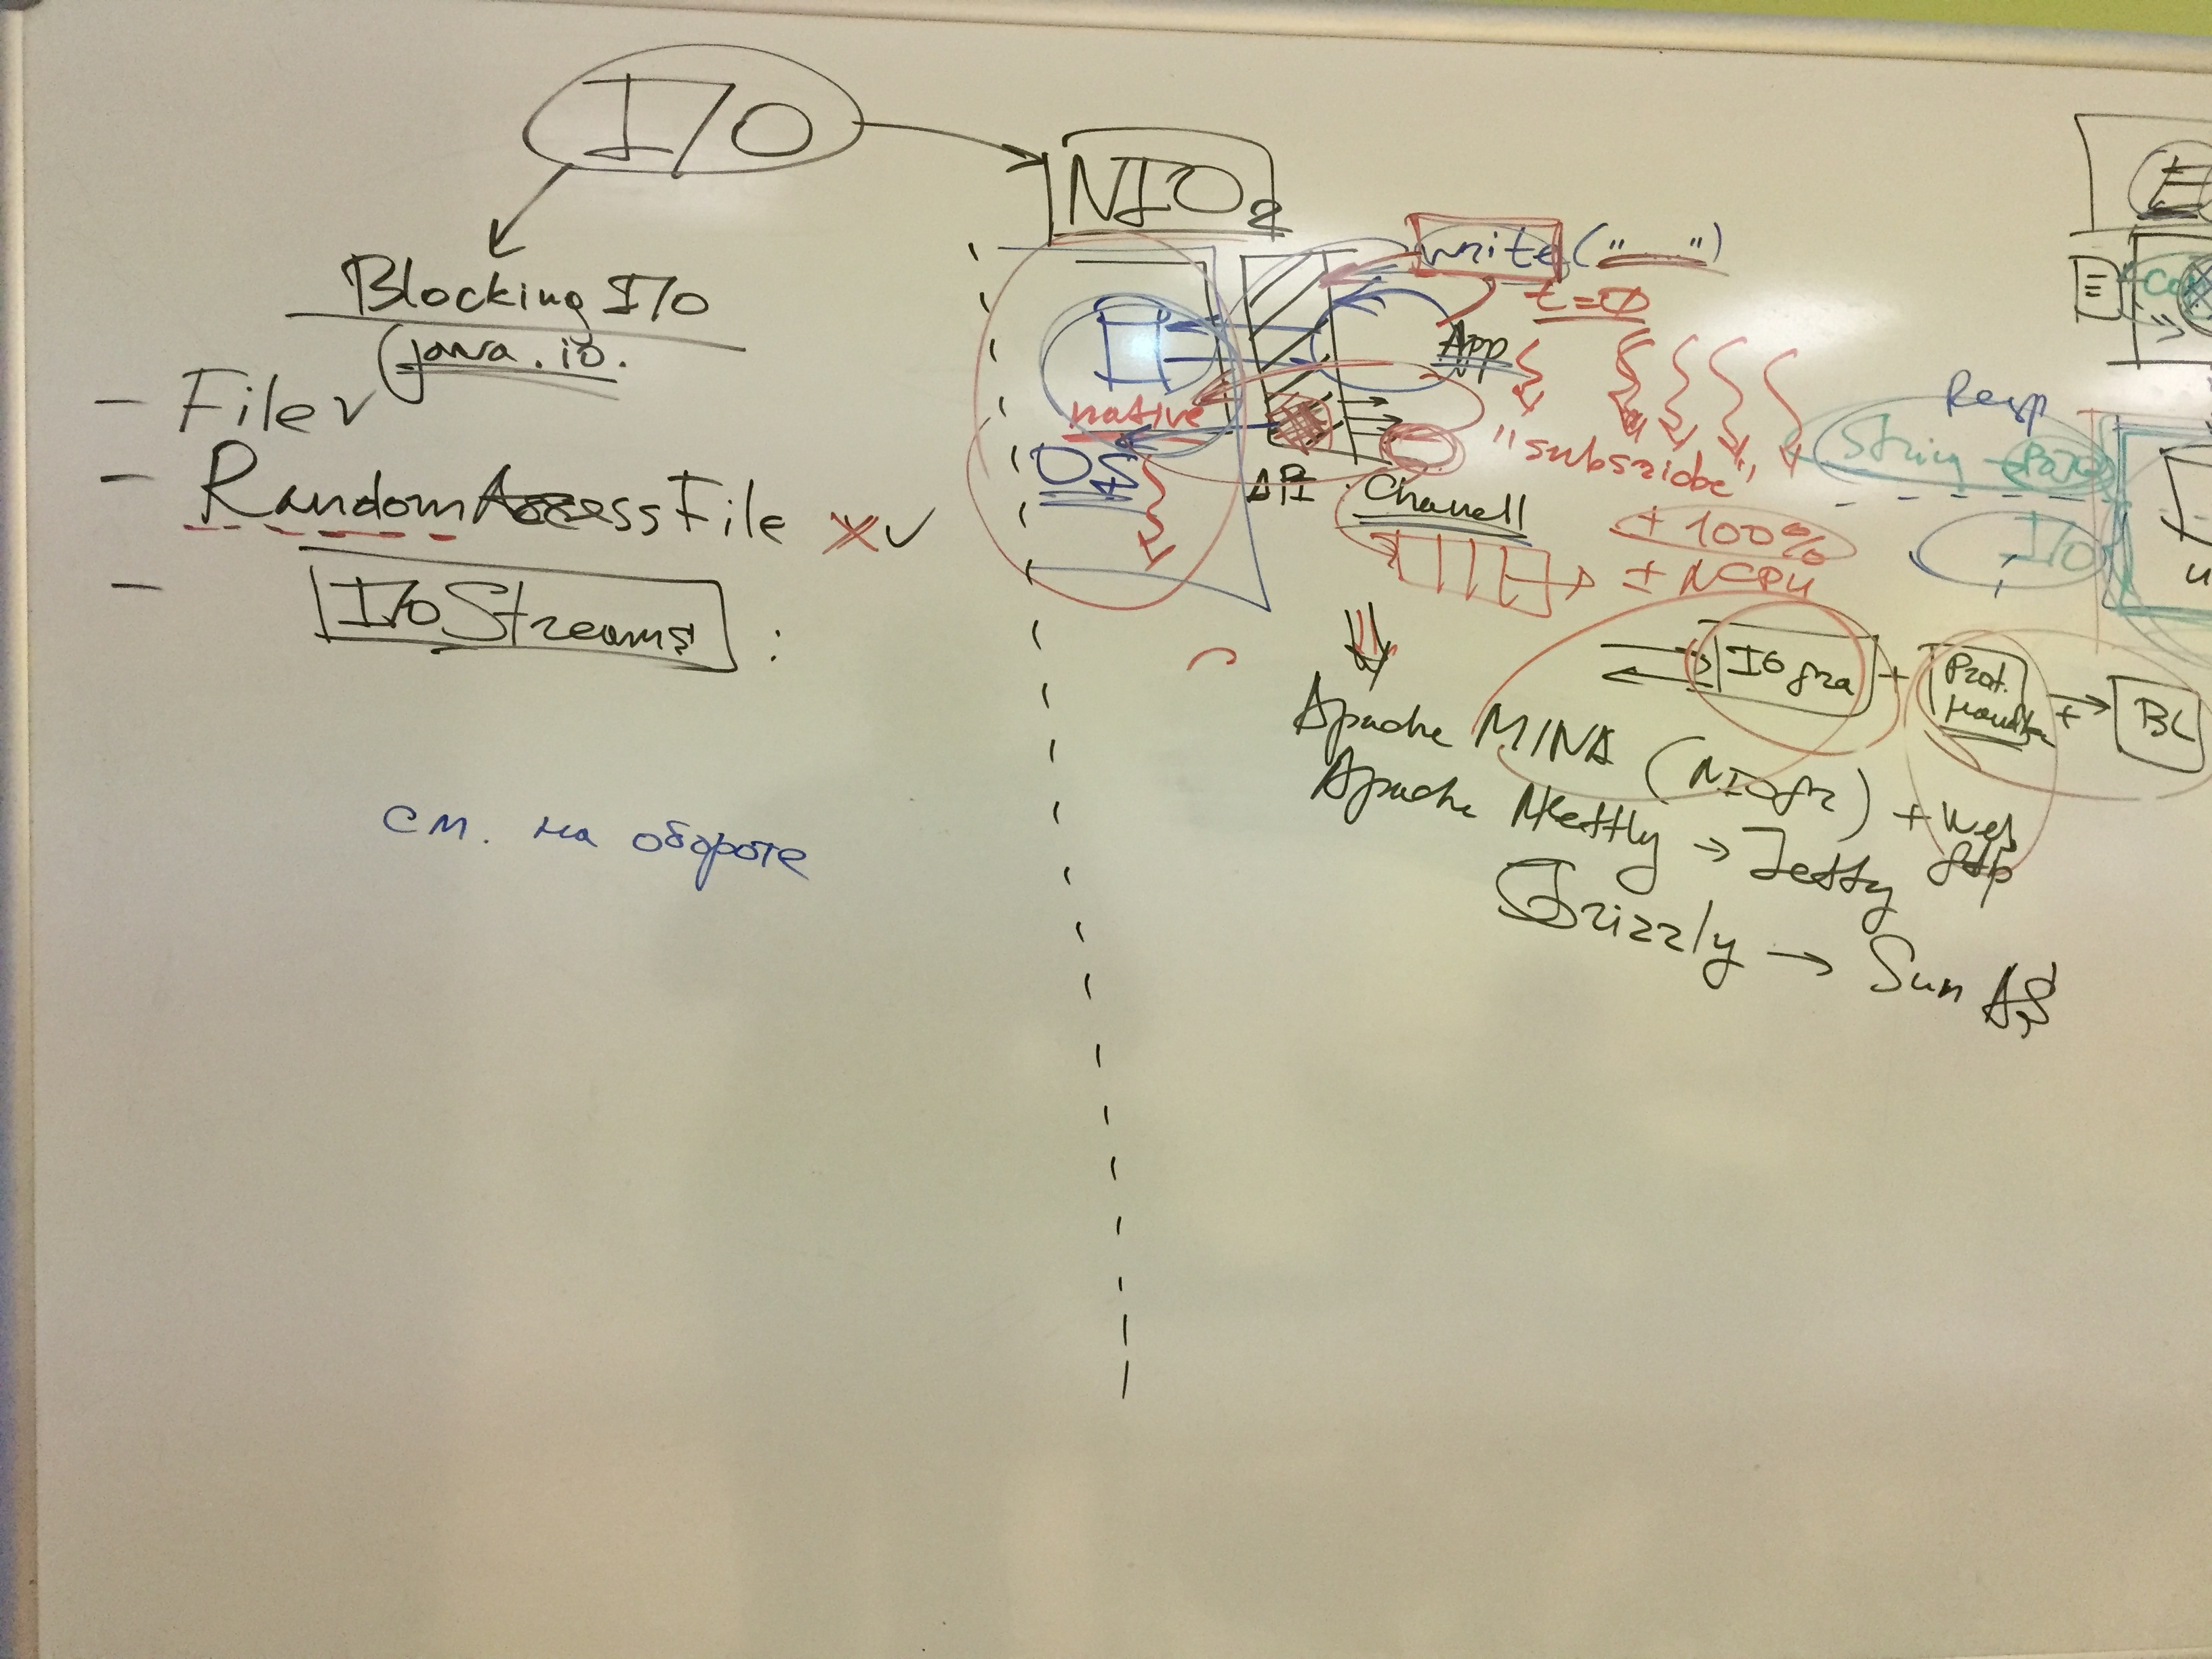 I/O
NIO2
Blocking I/O
java.io.
- File v
- RandomAccessFile x v
- I/O Streams :
см. на обороте
write("....")
t=0
App
native
OS
API
Channell
"subscribe"
+ 100%
± NCPU
Resp
String
I/O
IO fra + Prot. Handler + → BL
Apache MINA (NIO fr) + Web
Apache Nettly → Jetty ftp
Grizzly → Sun AS